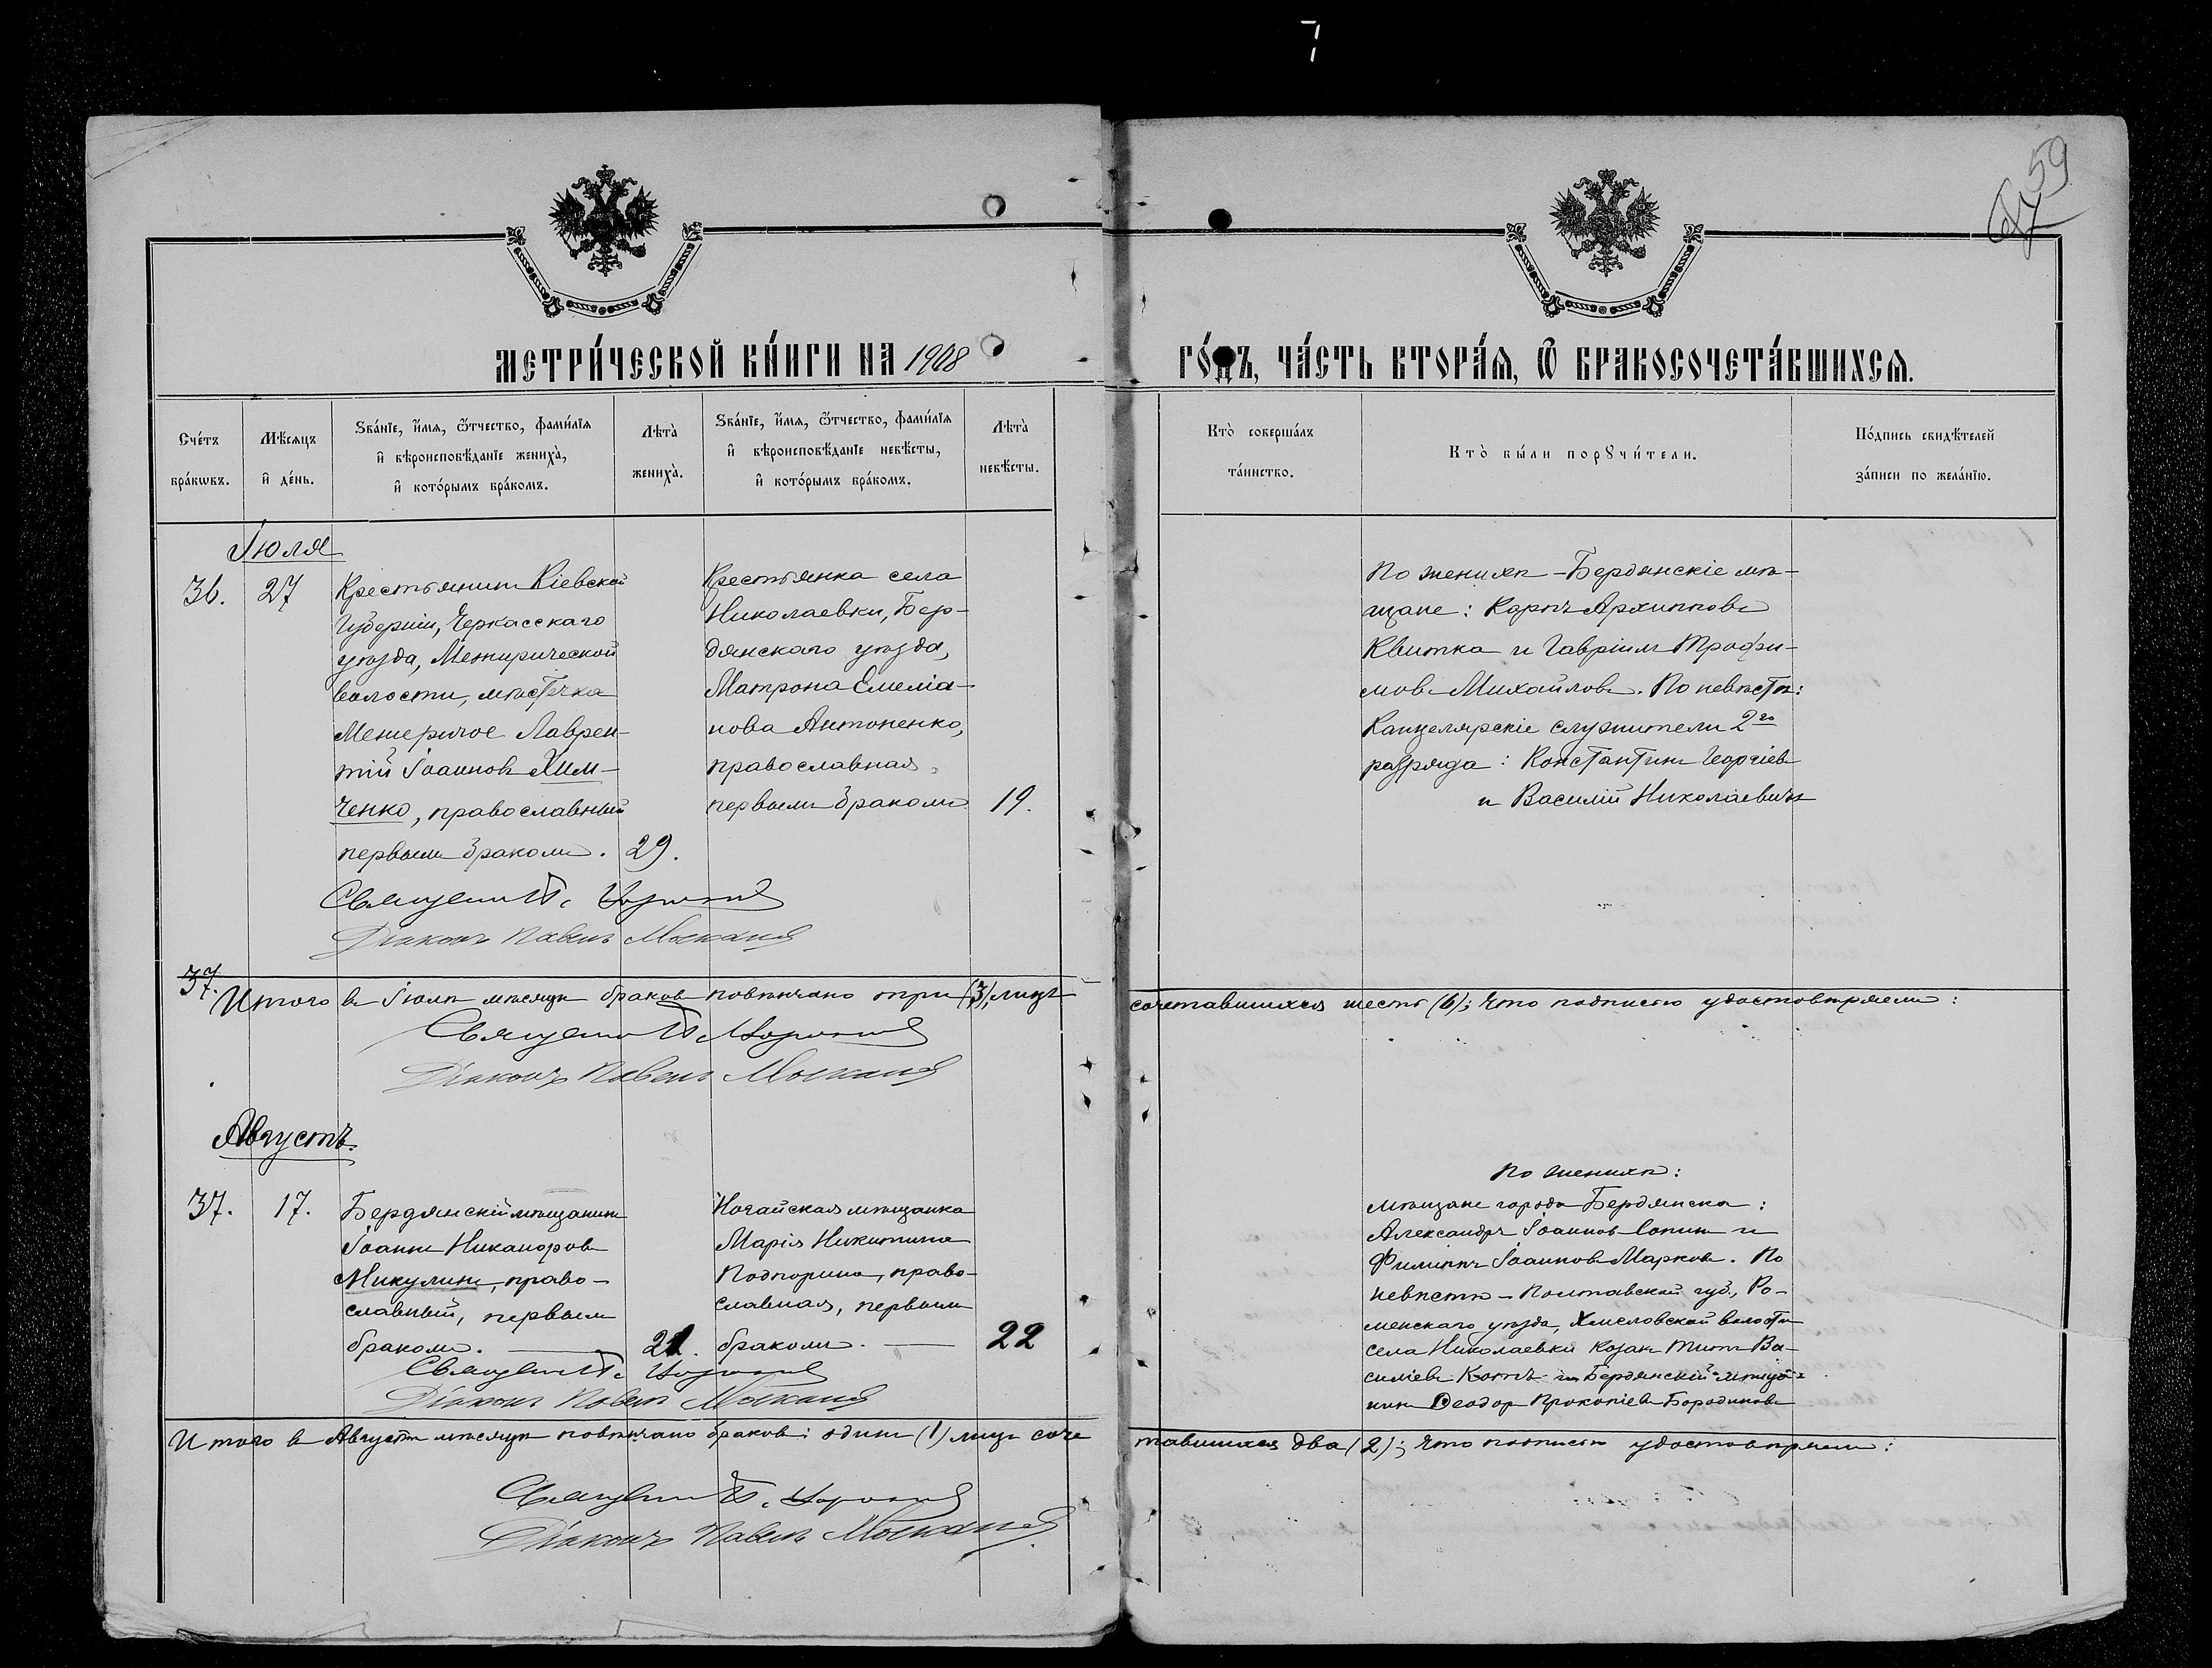 7
59
МЕТРИ́ЧЕСКОЙ КНИ́ГИ НА 1908
ГО́ДЪ, ЧА́СТЬ ВТОРА́Я, Ѿ БРАКОСОЧЕТА́ВШИХСЯ.
Сче́тъ бра́кѡвъ.
Мѣ́сяцъ и҆ де́нь.
Ѕва́нїе, и҆́мя, ѻ҆́тчество, фами́лїя
и҆ вѣроисповѣ́данїе жениха̀,
и҆ кото́рымъ бра́комъ.
Лѣта̀ жениха̀.
Ѕва́нїе, и҆́мя, ѻ҆́тчество, фами́лїя
и҆ вѣроисповѣ́данїе невѣ́сты,
и҆ кото́рымъ бра́комъ.
Лѣта̀ невѣ́сты.
Кто̀ соверша́лъ та́инство.
Кто̀ бы́ли порꙋчи́тели.
По́дпись свидѣ́телей
за́писи по жела́нїю.
Іюля
36.
27
Крестьянинъ Кіевской
Губерніи, Черкасскаго
уѣзда, Межирической
волости, мѣстечка
Межеричое Лаврен-
тій Іоанновъ Хим-
ченко, православный
первымъ бракомъ.
29.
Крестьянка села
Николаевки, Бер-
дянскаго уѣзда,
Матрона Емеліа-
нова Антоненко,
православная,
первымъ бракомъ
19.
По женихѣ - Бердянскіе мѣ-
щане: Карпъ Архипповъ
Квитка и Гавріилъ Трофи-
мовъ Михайловъ. По невѣстѣ:
Канцелярскіе служители 2го
разряда: Константинъ Георгіевъ
и Василій Николаевичъ
Священникъ П.
Діаконъ Павелъ
37.
Итого въ Іюлѣ мѣсяцѣ браковъ повѣнчано три (3), лицъ
сочетавшихся шесть (6); что подписью удостовѣряемъ:
Священникъ П.
Діаконъ Павелъ
Августъ.
37.
17.
Бердянскій мѣщанинъ
Іоаннъ Никаноровъ
Микулинъ, право-
славный, первымъ
бракомъ.
21.
Ногайская мѣщанка
Марія Никитина
Подпорина, право-
славная, первымъ
бракомъ.
22
По женихѣ:
мѣщане города Бердянска:
Александръ Іоанновъ Сопинъ и
Филиппъ Іоанновъ Марковъ. По
невѣстѣ - Полтавской губ., Ро-
менскаго уѣзда, Хмеловской волости
села Николаевки козакъ Титъ Ва-
силіевъ Котъ и Бердянскій мѣща-
нинъ Ѳеодоръ Прокопіевъ Бородиновъ
Священникъ П.
Діаконъ Павелъ
Итого въ Августѣ мѣсяцѣ повѣнчано браковъ: одинъ (1) лицъ соче
тавшихся два (2); что подписью удостовѣряемъ:
Священникъ П.
Діаконъ Павелъ